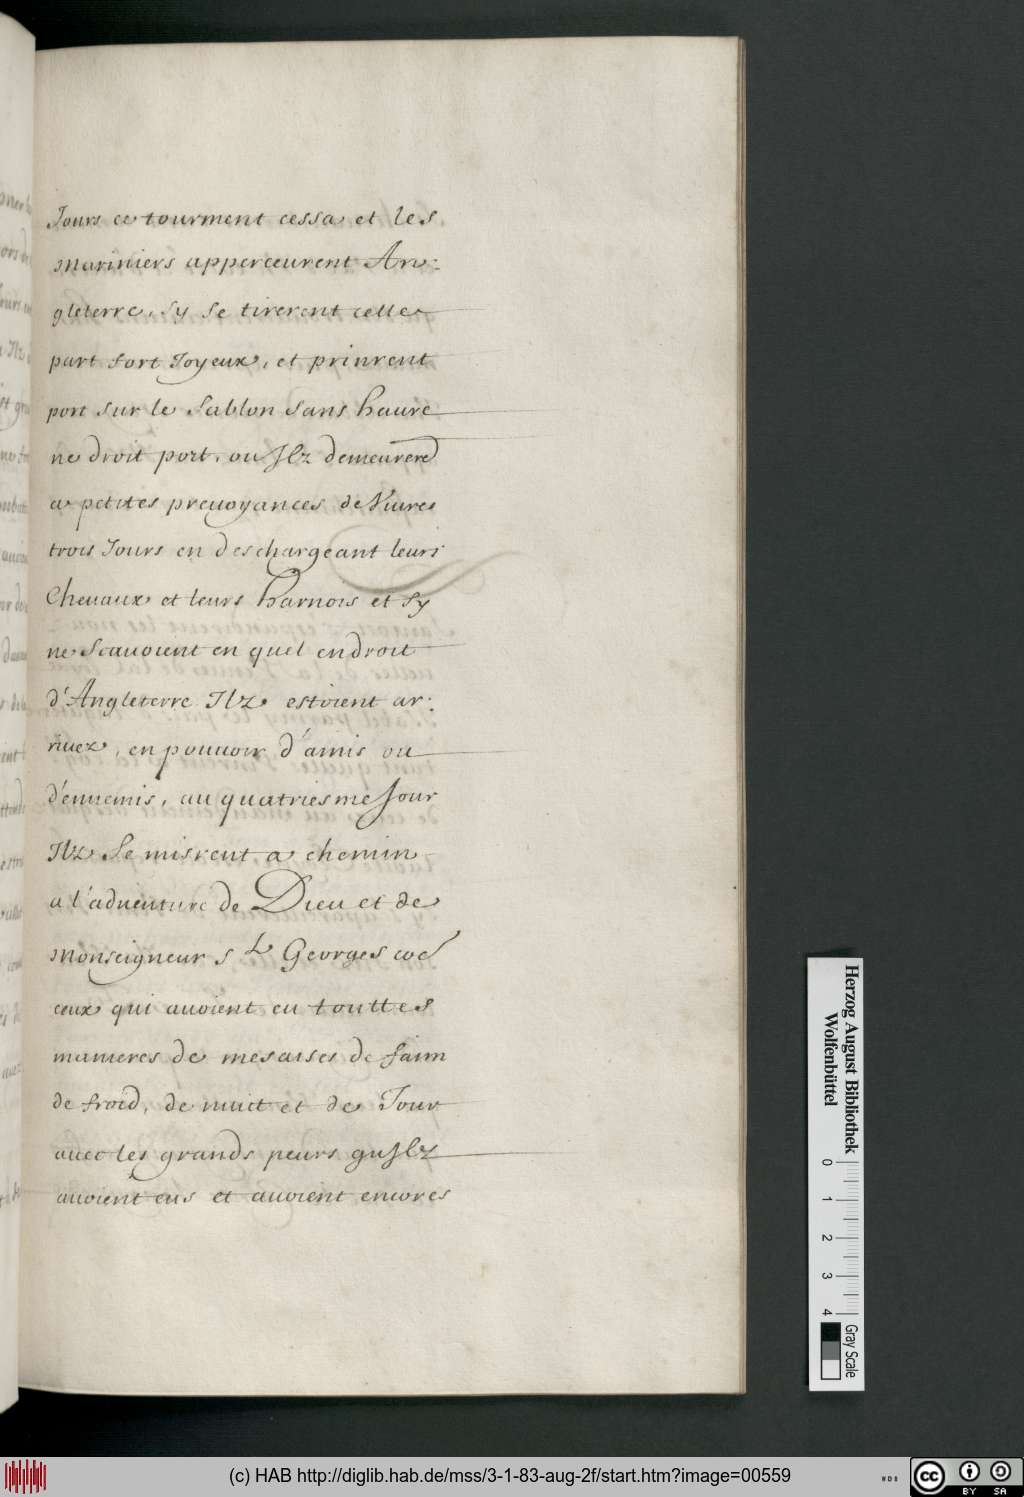 Jours ce tourment cessa et les
mariniers apperceurent An:
gleterre, sy se tirerent celle
part fort Joyeux, et prinrent
port sur le sablon sans haure
ne droit port, ou Jlz demeurere
a petites preuoyances de Viures
trois Jours en deschargeant leurs
Cheuaux et leurs harnois et sy
ne scauoient en quel endroit
d'Angleterre Jlz estoient ar:
riuez, en pouuoir d'amis ou
d'ennemis, au quatriesme Jour
Jlz Se misrent a chemin
a l'aduenture de Dieu et de
monseigneur st Georges
ceux qui auoient eu touttes
manieres de mesaises de faim
de froid, de nuict et de Jour
auec les grands peurs quJlz
auoient eus et auoient encores
Herzog August Bibliothek
Wolfenbüttel
0 1 2 3 4
Gray Scale
(c) HAB http://diglib.hab.de/mss/3-1-83-aug-2f/start.htm?image=00559
WDB
cc BY SA